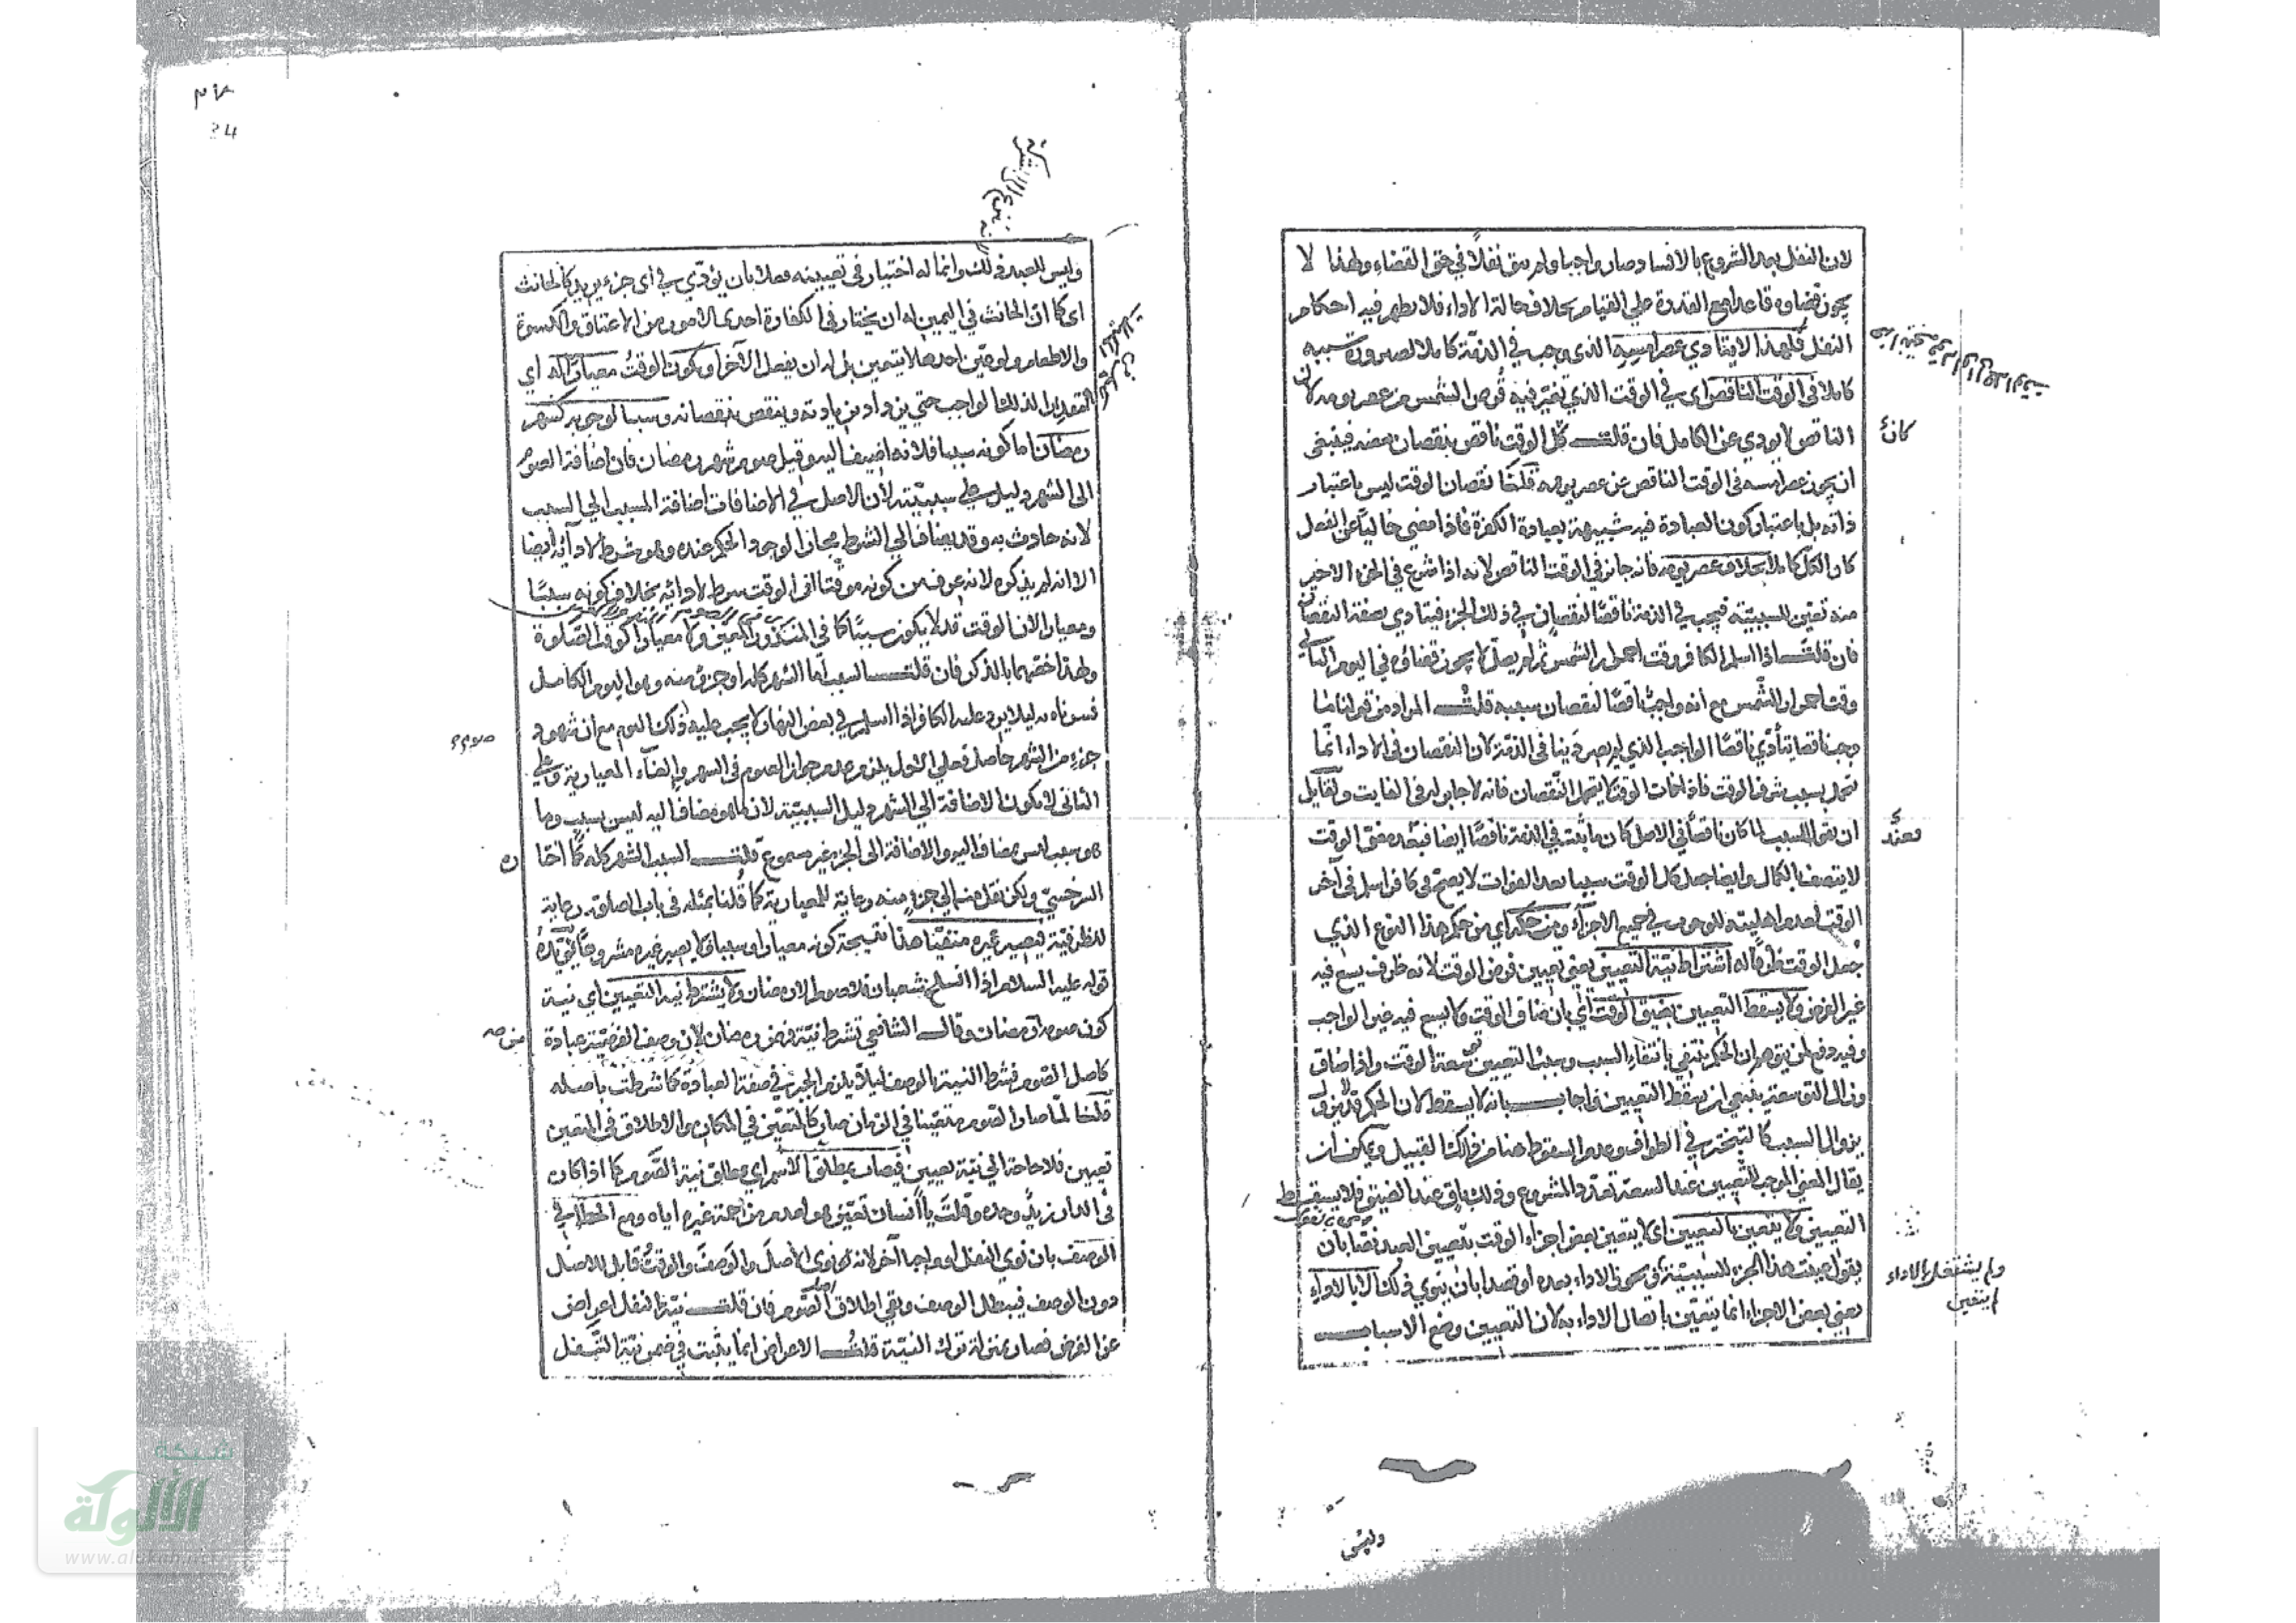 لان النفل بعد الشروع بالافساد صار واجبا ولم يبق نفلا في حق القضاء ولهذا لا
يجوز قضاوه قاعدا مع القدرة علي القيام بخلاف حالة الاداء فلا يظهر فيه احكام
النفل فلهذا لا يتادي عصر امسه الذى وجب في الذمة كاملا لصيرورة سببه
كاملا فى الوقت الناقص اى في الوقت الذي تغير فيه قرص الشمس من عصر يومه لان
الناقص لا يودي عن الكامل فان قلت كل الوقت ناقص بنقصان بعضه فينبغى
ان يجوز عصر امسه فى الوقت الناقص عن عصر يومه قلنا نقصان الوقت ليس باعتبار
ذاته بل باعتبار كون العبادة فيه شبيهة بعبادة الكفرة فاذا مضى خاليا عن الفعل
كان الكل كاملا بخلاف عصر يومه فانه جائز في الوقت الناقص لانه اذا شرع في الجزء الاخير
منه تعين للسببية فيجب في الذمة ناقصا لنقصان في ذلك الجزء فيتادي بصفة النقصان
فان قلت اذا اسلم الكافر وقت احمرار الشمس ثم لم يصل لا يجوز قضاؤه في اليوم الثاني
وقت احمرار الشمس مع انه واجب ناقصا لنقصان سببه قلت المراد من قولنا ما
وجب ناقصا يتأدي ناقصا الواجب الذي لم يصر دينا فى الذمة لان النقصان فى الاداء انما
يتحمل بسبب شرف الوقت فاذا فات الوقت لا يتحمل النقصان فانه لا جابر له فى الفايت ولقايل
ان يقول السبب لما كان ناقصا في الاصل كان ما يثبت في الذمة ناقصا ايضا فبعد مضى الوقت
لا يتصف بالكمال وايضا جعل كل الوقت سببا بعد الفوات لا يصح فى كافر اسلم فى آخر
الوقت لعدم اهليته للوجوب في جميع الاجزاء ومن حكمه اي من حكم هذا النوع الذي
جعل الوقت ظرفا له اشتراط نية التعيين يعني تعيين فرض الوقت لانه ظرف يسع فيه
غير الفرض ولا يسقط التعيين بضيق الوقت اي بان ضاق الوقت ولا يسع فيه غير الواجب
وفيه دفع لمن يتوهم ان الحكم ينتفي بانتفاء السبب وسبب التعيين سعة الوقت واذا ضاق
وزالت التوسعة ينبغي ان يسقط التعيين فاجاب بانه لا يسقط لان الحكم قد لا يزول
بزوال السبب كالتبختر في الطواف وعدم السقوط هنا من ذلك القبيل ويمكن ان
يقال المعنى الموجب للتعيين عند السعة تعدد المشروع وذلك باق عند الضيق فلا يسقط
التعيين ولا يتعين بالتعيين اى لا يتعين بعض اجزاء الوقت بتعيين العبد نصا بان
يقول عينت هذا الجزء للسببية او قصدا بان ينوي ذلك الا بالاداء
يعني بعض الاجزاء انما يتعين باتصال الاداء به لان التعيين وضع الاسباب
كان
ولم يشتغل بالاداء
لم يتعين
وليس
٣٤
34
وليس للعبد ذلك وانما له اختيار فى تعيينه فعلا بان يؤدي في اى جزء يريد كالحانث
اى كما ان الحانث في اليمين له ان يختار في الكفارة احدى الامور من الاعتاق والكسوة
والاطعام ولو عين احدها لا يتعين بل له ان يفعل الآخر او يكون الوقت معيارا له اي
لذلك الواجب حتي يزداد بزيادته وينقص بنقصانه وسببا لوجوبه كشهر
رمضان اما كونه سببا فلانه اضيف اليه وقيل صوم شهر رمضان فان اضافة الصوم
الى الشهر دليل علي سببيته لان الاصل في الاضافات اضافة المسبب الي السبب
لانه حادث به وقد يضاف الي الشرط مجازا لوجود الحكم عنده وهو شرط لادائه ايضا
الا انه لم يذكره لانه عرف من كونه موقتا ان الوقت شرط لادائه بخلاف كونه سببا
ومعيارا لان الوقت قد لا يكون سببا كما في المنذور المعين ولا معيارا كوقت الصلوة
ولهذا خصهما بالذكر فان قلت السبب اما الشهر كله او جزؤ منه وهو اليوم الكامل
فسرناه به ليلا يرد عليه الكافر اذا اسلم في بعض النهار لا يجب عليه ذلك اليوم مع ان شهود
جزء من الشهر حاصل فعلي الاول يلزم عدم جواز الصوم فى الشهر والغاء المعيارية وعلى
الثانى لا يكون الاضافة الي الشهر دليل السببية لان ما هو مضاف اليه ليس بسبب وما
هو سبب ليس مضافا اليه والاضافة الى الجزء غير مسموع قلت السبب الشهر كله
السرخسي ولكن نقل منه الي جزء منه رعاية للمعيارية كما قلنا بمثله في باب الصلوة رعاية
للظرفية فيصير غيره منفيا هذا نتيجة كونه معيارا وسببا لا يصير غيره مشروعا يؤيده
قوله عليه السلام اذا انسلخ شعبان فلا صوم الا رمضان ولا يشترط نية التعيين اي نية
كون صومه رمضان وقال الشافعي تشرط نية فرض رمضان لان وصف الفرضية عبادة
كاصل الصوم فشرط النية بالوصف ليلا يلزم الجبر في صفة العبادة كما شرطت باصله
قلنا لما صار الصوم متعينا في الزمان صار كالمتعين في المكان والاطلاق فى المتعين
تعيين فلا حاجة الي نية تعيين فيصاب بمطلق الاسم اي مطلق نية الصوم كما اذا كان
في الدار زيد وحده وقلت يا انسان تعين هو لعدم مزاحمة غيره اياه ومع الخطأ في
الوصف بان نوي النفل او واجبا آخر لانه نوى الاصل والوصف والوقت قابل للاصل
دون الوصف فيبطل الوصف وبقي اطلاق الصوم فان قلت نية النفل اعراض
عن الفرض فصار بمنزلة ترك النية قلت الاعراض انما يثبت في ضمن نية النفل
صوم